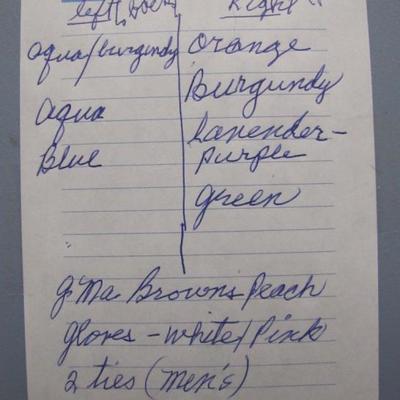 left
Right "
aqua/burgundy
aqua
Blue
Orange
Burgundy
Lavender-
purple
green
g'Ma Browns Peach
gloves - white/Pink
2 ties (men's)